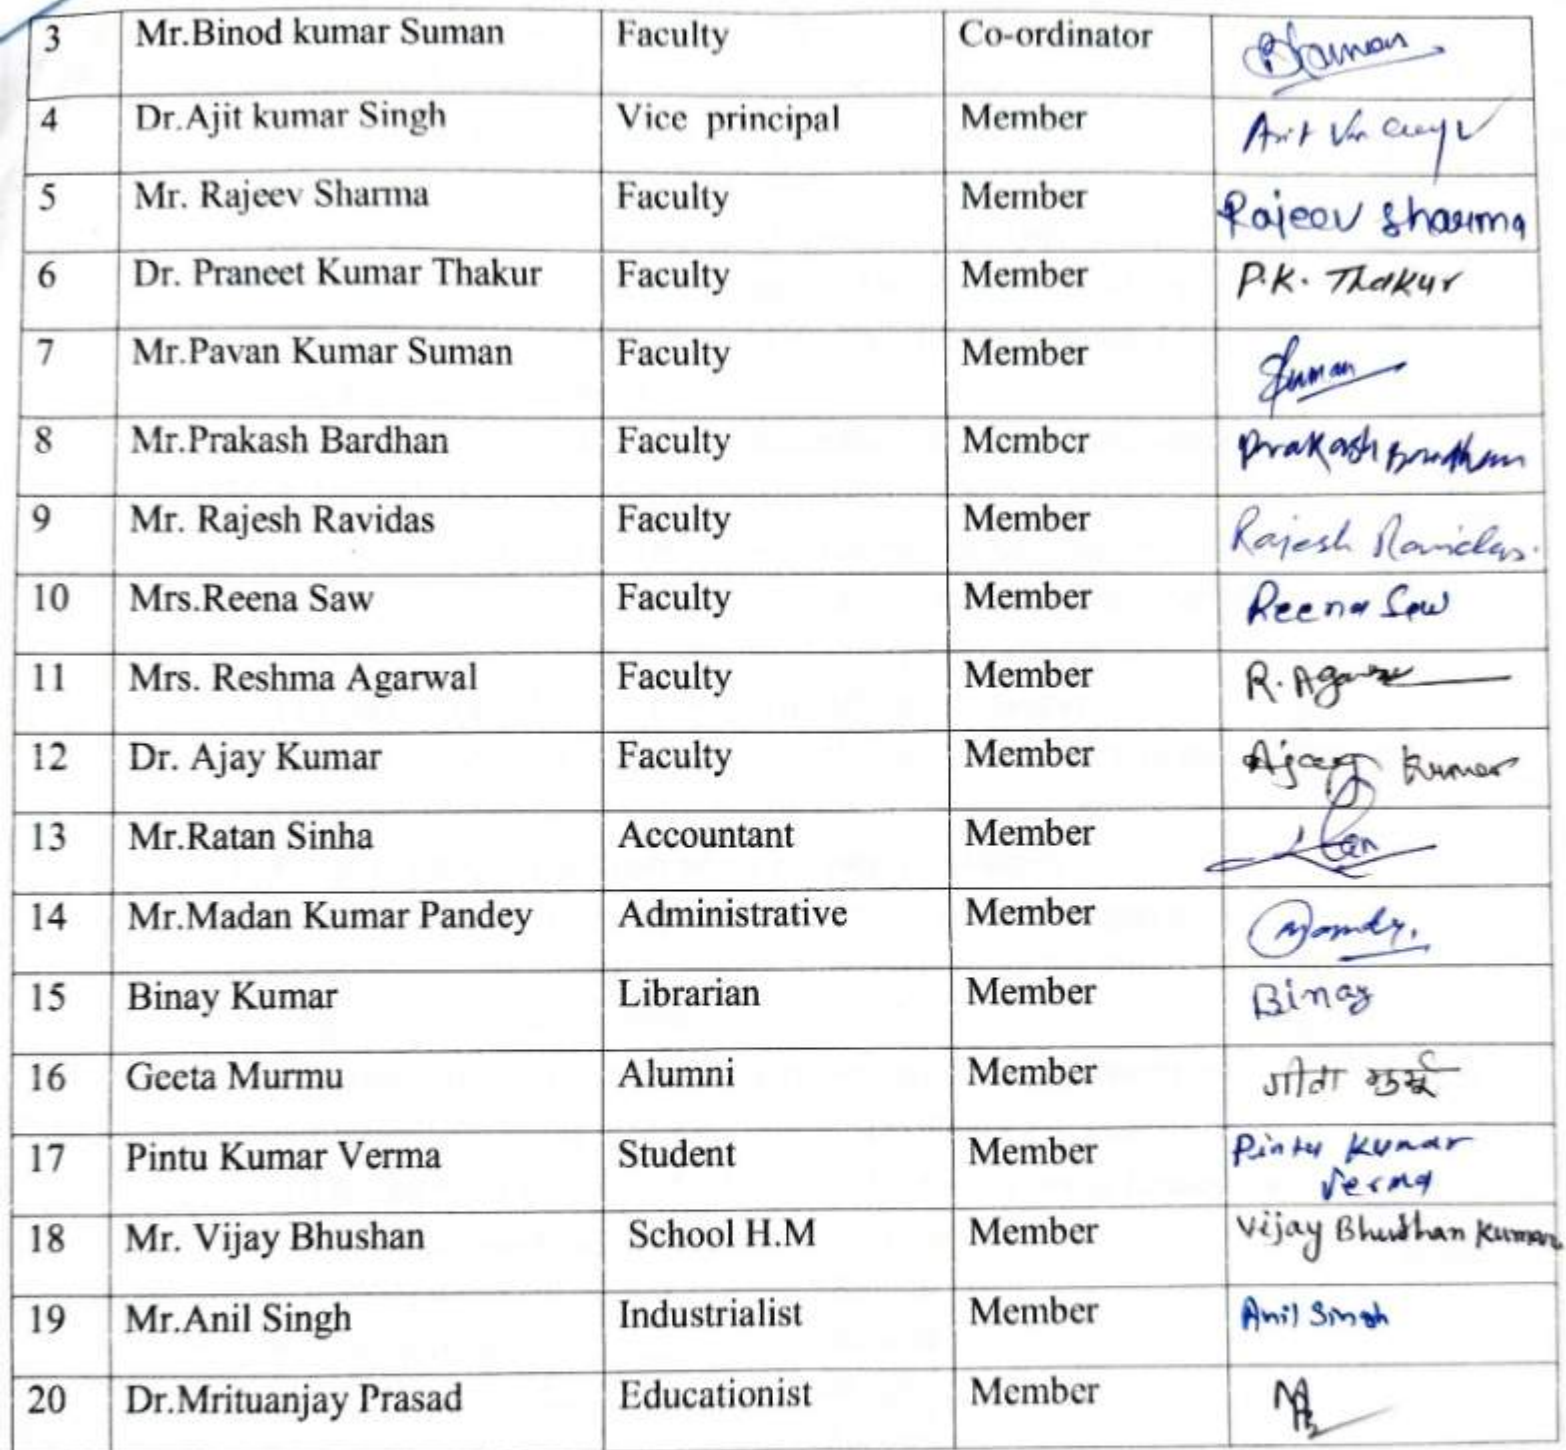 3 Mr.Binod kumar Suman Faculty Co-ordinator
4 Dr.Ajit kumar Singh Vice principal Member
5 Mr. Rajeev Sharma Faculty Member Rajeev Sharma
6 Dr. Praneet Kumar Thakur Faculty Member P.K. Thakur
7 Mr.Pavan Kumar Suman Faculty Member Suman
8 Mr.Prakash Bardhan Faculty Member Prakash Bardhan
9 Mr. Rajesh Ravidas Faculty Member Rajesh Ravidas.
10 Mrs.Reena Saw Faculty Member Reena Saw
11 Mrs. Reshma Agarwal Faculty Member
12 Dr. Ajay Kumar Faculty Member Ajay Kumar
13 Mr.Ratan Sinha Accountant Member
14 Mr.Madan Kumar Pandey Administrative Member
15 Binay Kumar Librarian Member Binay
16 Geeta Murmu Alumni Member गीता मुर्मू
17 Pintu Kumar Verma Student Member Pintu Kumar
Verma
18 Mr. Vijay Bhushan School H.M Member Vijay Bhushan Kumar
19 Mr.Anil Singh Industrialist Member Anil Singh
20 Dr.Mrituanjay Prasad Educationist Member